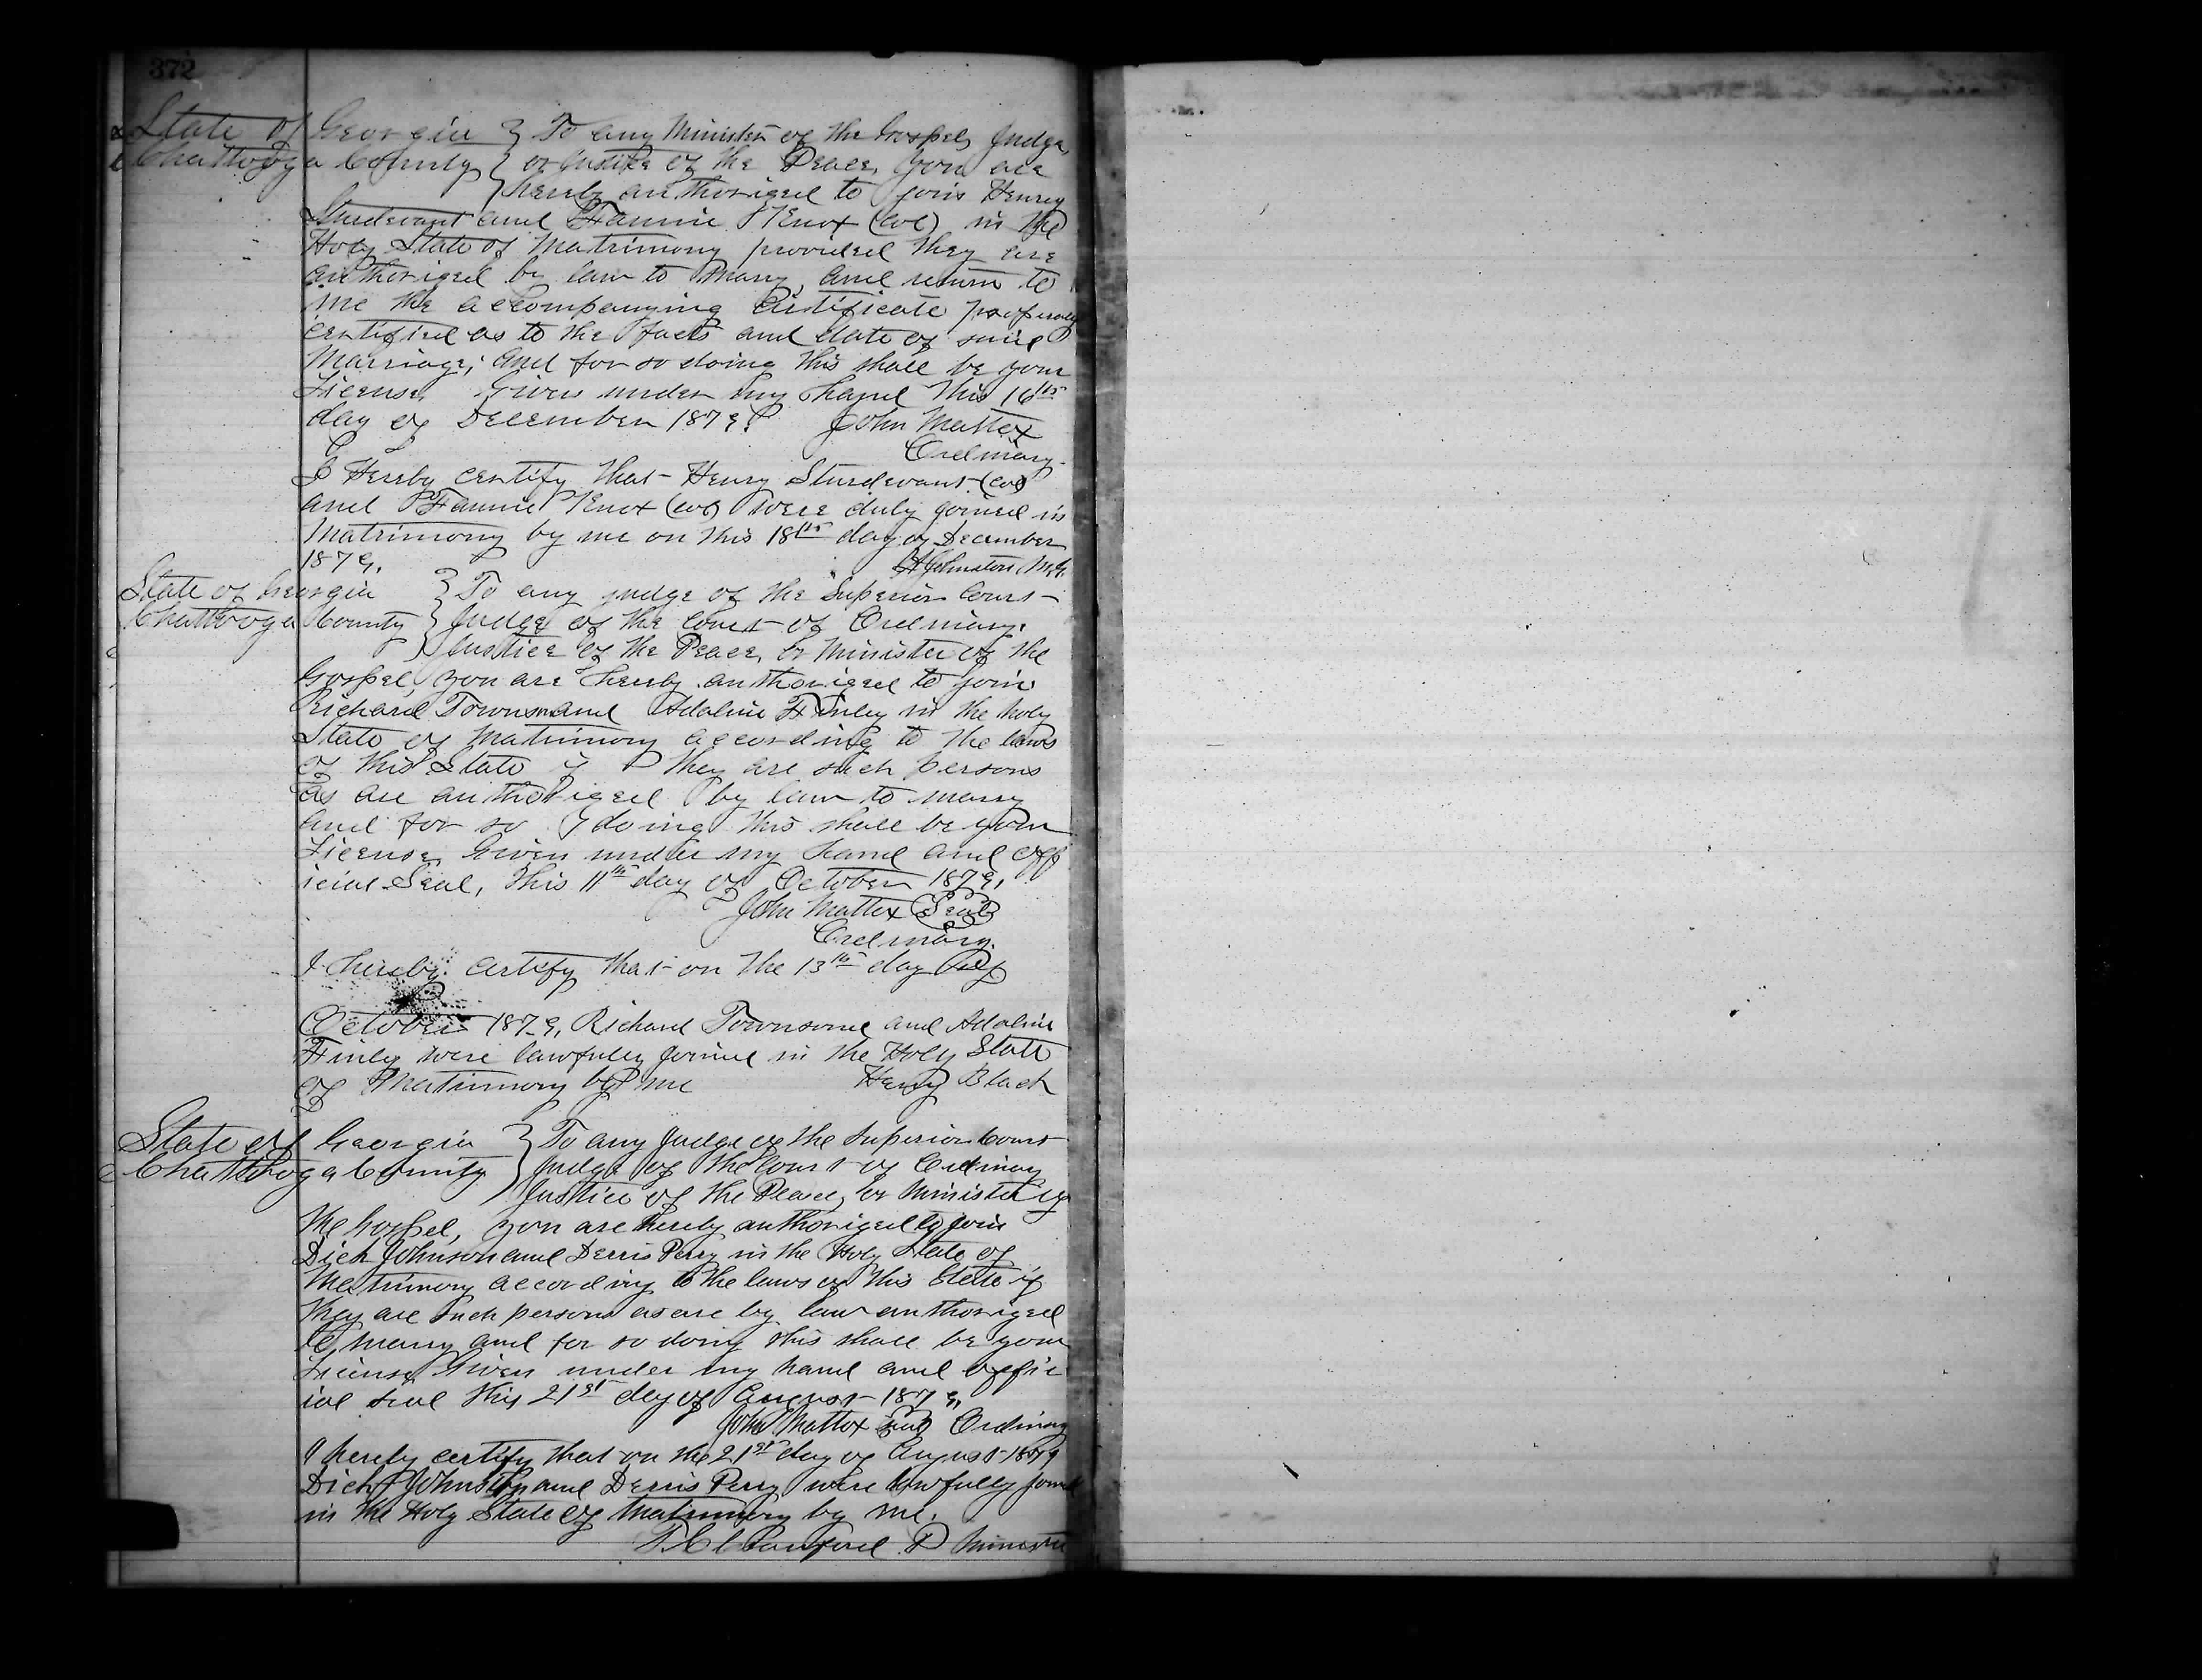 372
State of Georgia } To any Minister of the Gospel, Judge,
Chattooga County } or Justice of the Peace, You are
hereby authorized to join Henry
Sturdevant and Fannie Knox (col) in the
Holy State of Matrimony provided they are
authorized by law to marry, and return to
me the accompanying Certificate properly
certified as to the facts and date of said
Marriage; and for so doing this shall be your
License. Given under my hand this 16th
day of December 1879. John Mattox
Ordinary.
I Hereby certify that Henry Sturdevant (col)
and Fannie Knox (col) were duly joined in
Matrimony by me on this 18th day of December
1879. Johnston M.G.
State of Georgia } To any judge of the Superior Court
Chattooga County } Judge of the Court of Ordinary.
Justice of the Peace, or Minister of the
Gospel, you are hereby authorized to join
Richard Towns and Adaline Finley in the holy
State of Matrimony according to the laws
of this State if they are such persons
as are authorized by law to marry
and for so doing this shall be your
License, Given under my hand and off
icial Seal, this 11th day of October 1879.
John Mattox Seal
Ordinary.
I hereby certify that on the 13th day of
October 1879, Richard Townsome and Adaline
Finly were lawfully joined in the Holy State
of Matrimony by me Henry Black
State of Georgia } To any Judge of the Superior Court
Chattooga County } Judge of the Court of Ordinary
Justice of the Peace, or Minister of
the Gospel, you are hereby authorized to join
Dick Johnson and Derris Perry in the Holy State of
Matrimony according to the laws of this State if
they are such persons as are by law authorized
to marry and for so doing this shall be your
License Given under my hand and offic
ial seal this 21st day of August 1879,
John Mattox Seal Ordinary
I hereby certify that on the 21st day of August 1879
Dick Johnston and Derris Perry were lawfully joined
in the Holy State of Matrimony by me.
Minister